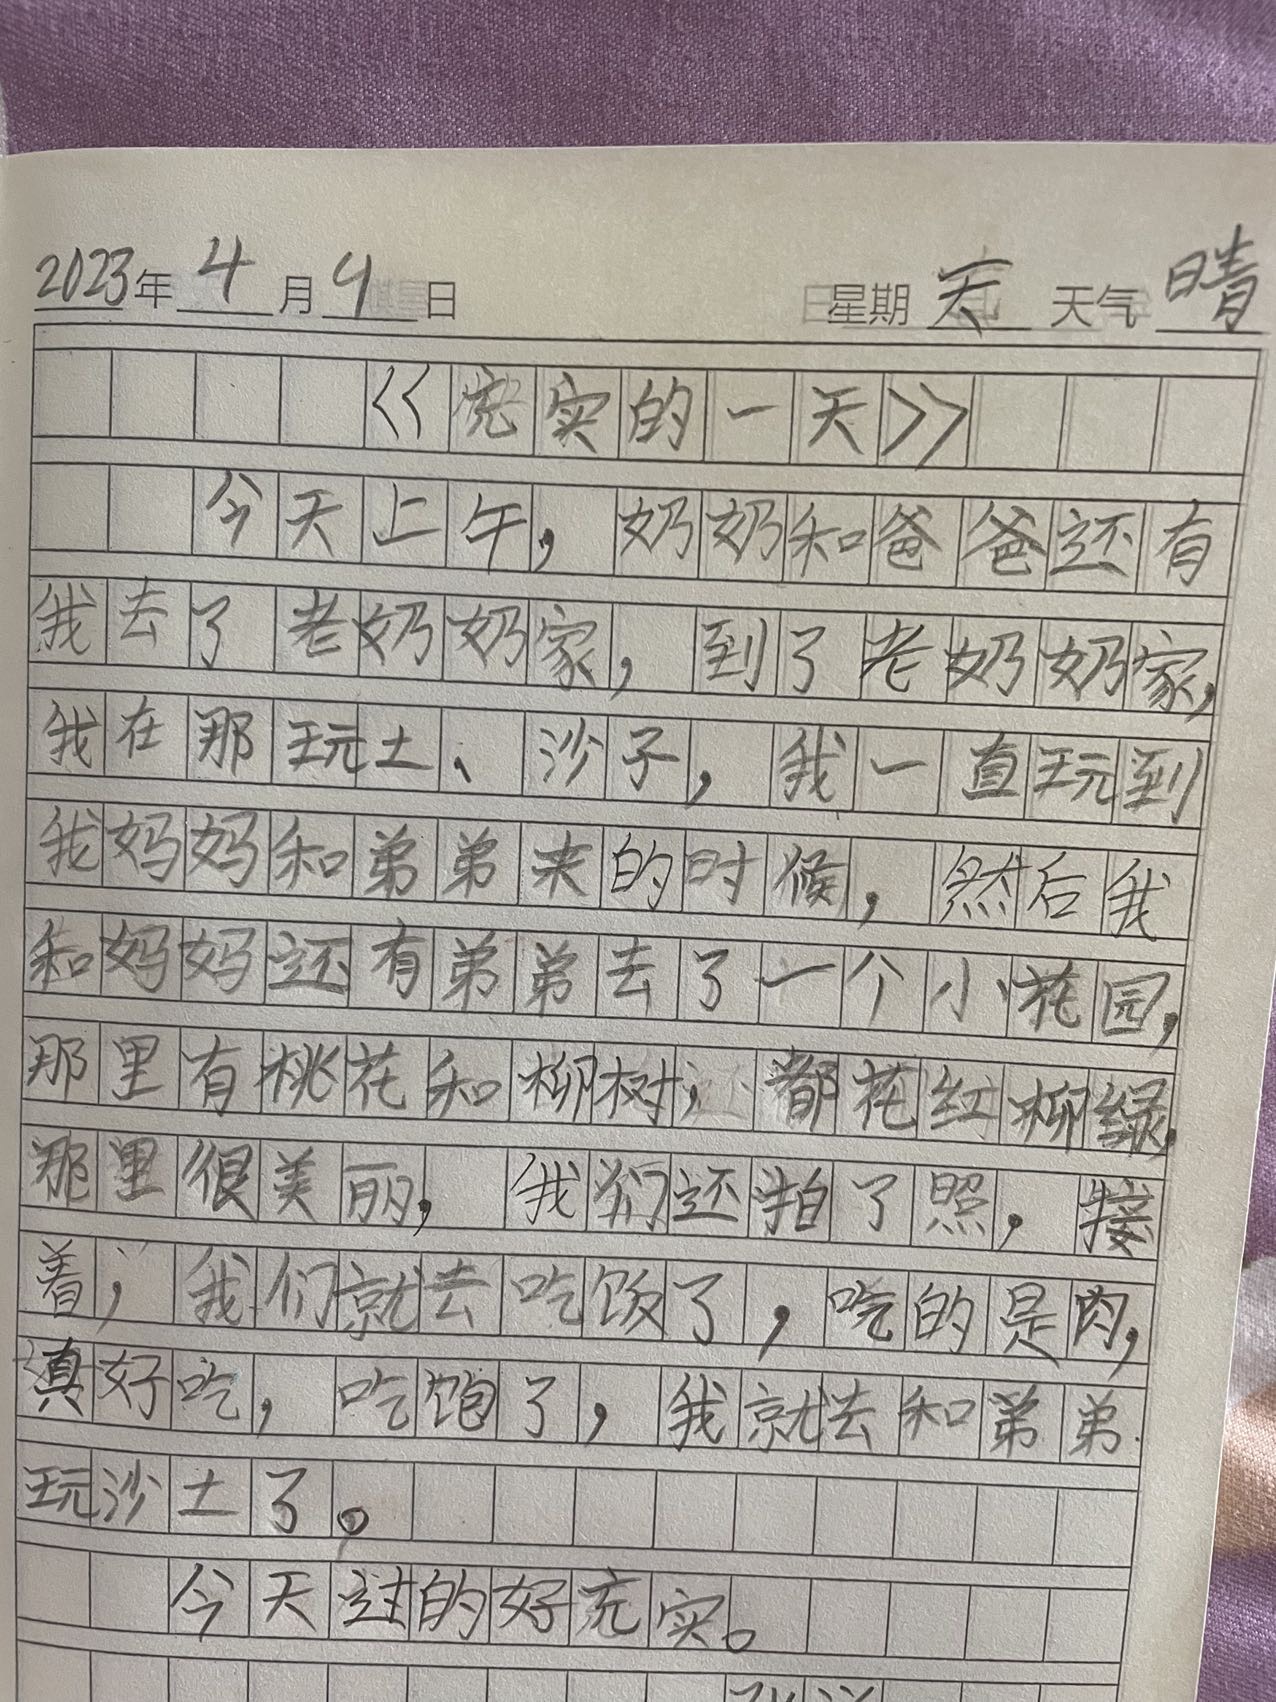 2023年4月9日 星期天 天气晴
《充实的一天》
今天上午，奶奶和爸爸还有
我去了老奶奶家，到了老奶奶家，
我在那玩土、沙子，我一直玩到
我妈妈和弟弟来的时候，然后我
和妈妈还有弟弟去了一个小花园，
那里有桃花和柳树，都花红柳绿，
那里很美丽，我们还拍了照，接
着，我们就去吃饭了，吃的是肉，
真好吃，吃饱了，我就去和弟弟
玩沙土了。
今天过的好充实。